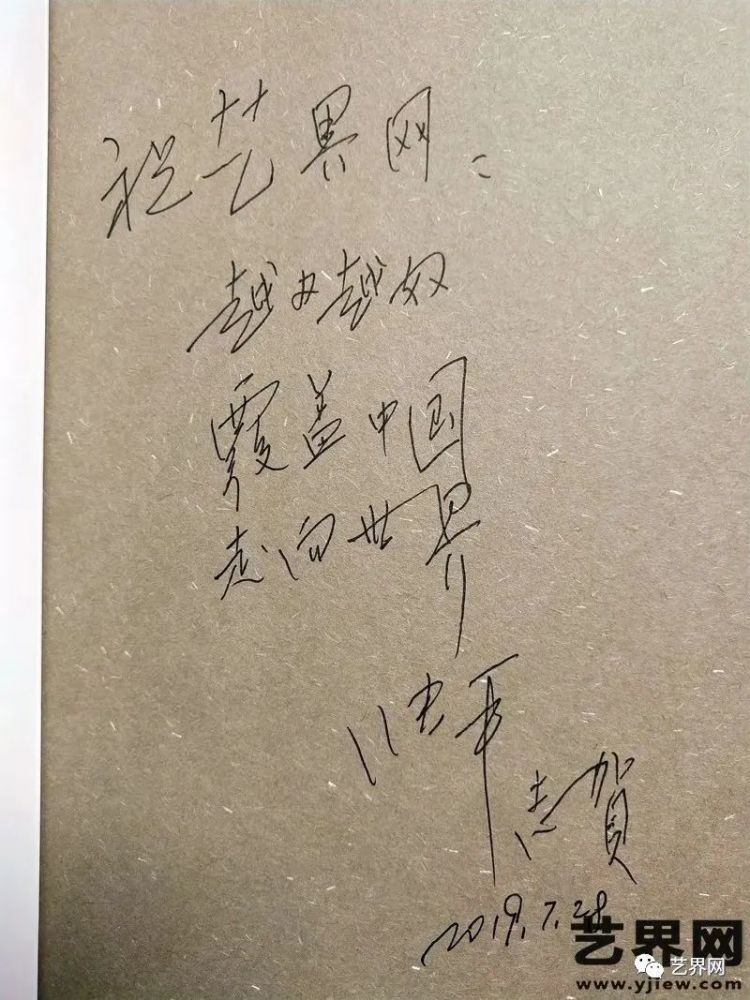 祝艺界网:
越办越好
覆盖中国
走向世界
志贺
2019.7.28
艺界网
艺界网
www.yjiew.com